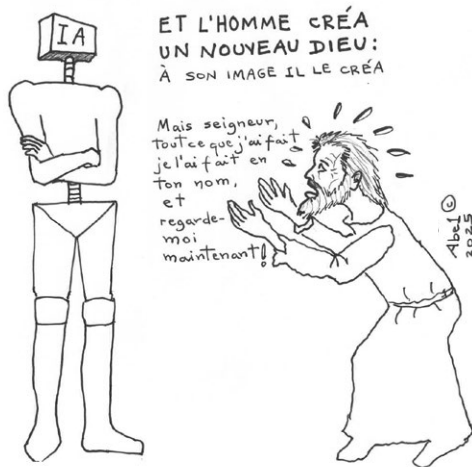 IA
ET L'HOMME CRÉA
UN NOUVEAU DIEU:
À SON IMAGE IL LE CRÉA
Mais seigneur,
tout ce que j'ai fait
je l'ai fait en
ton nom,
et
regarde-
moi
maintenant!
Abel ©
2025